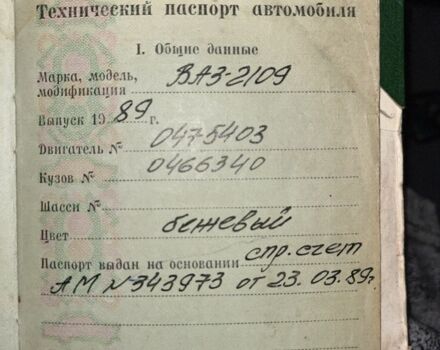 Технический паспорт автомобиля
I. Общие данные
Марка, модель,
модификация ВАЗ-2109
Выпуск 1989 г.
Двигатель № 0475403
Кузов № 0466340
Шасси №
Цвет бежевый
Паспорт выдан на основании спр.счет
АМ №343973 от 23.03.89г